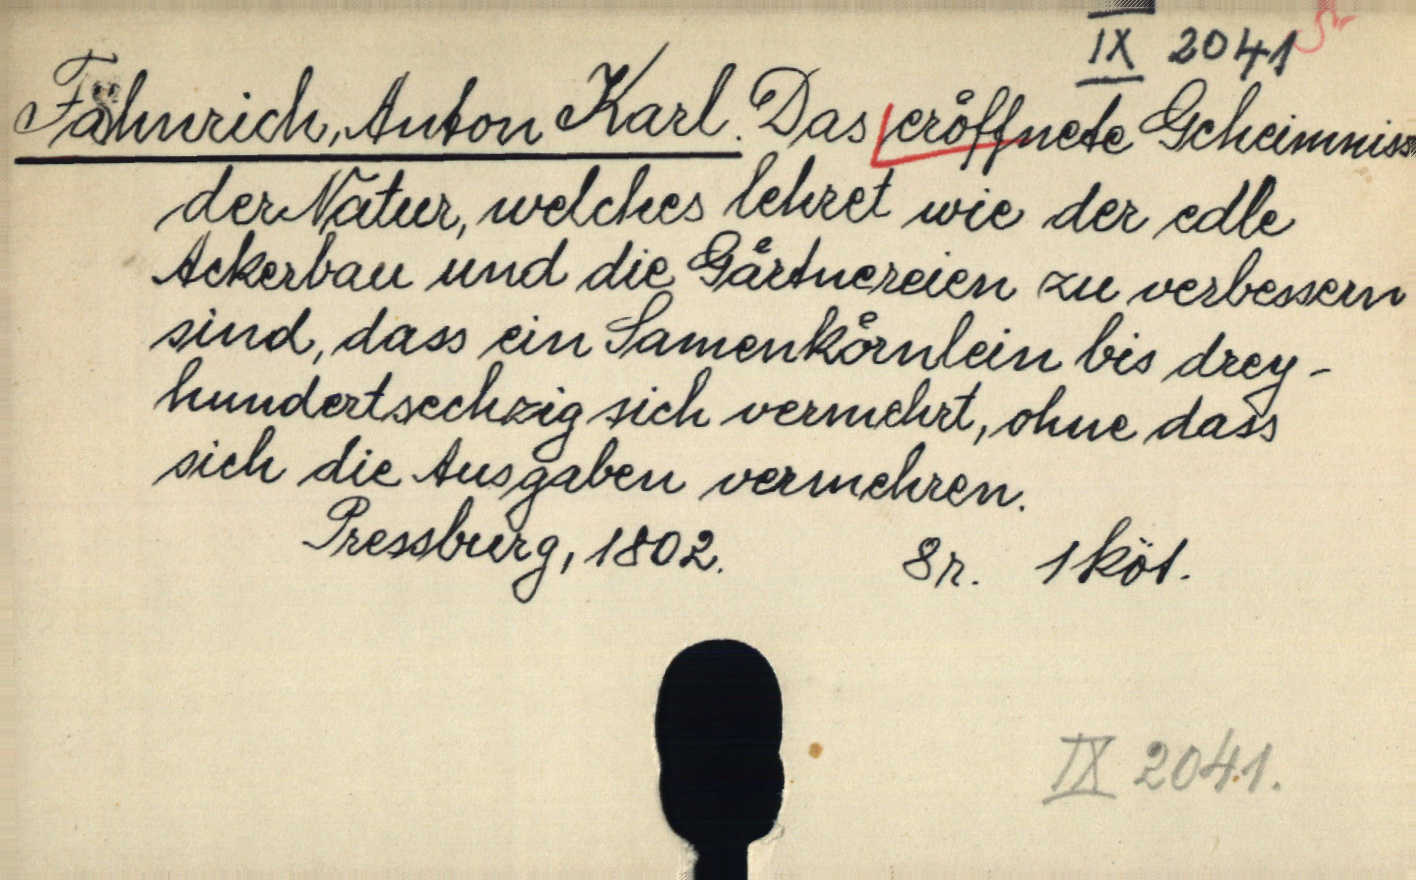 IX 2041
Fåhnrich, Anton Karl. Das eröffnete Geheimniss
der Natur, welches lehret wie der edle
Ackerbau und die Gårtnereien zu verbessern
sind, dass ein Samenkörnlein bis drey-
hundertsechzig sich vermehrt, ohne dass
sich die Ausgaben vermehren.
Pressburg, 1802. 8r. 1 köt.
IX 2041.